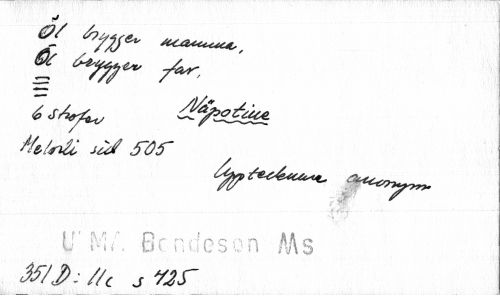 Öl brygger mamma,
Öl brygger far,
6 strofer Näpotine
Melodi sid 505
Uppteckare anonym
U MA Bondeson Ms
351 D: 11c s 425